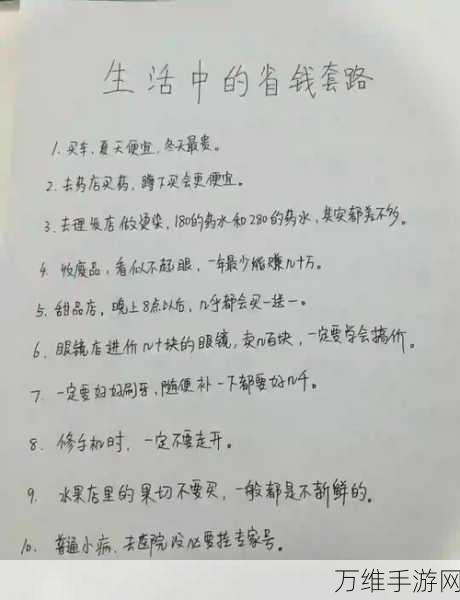 生活中的省钱套路
1. 买车,夏天便宜,冬天最贵。
2. 去药店买药,蹲下买会更便宜。
3. 去理发店做烫染,180的药水和280的药水,其实都差不多。
4. 收废品,看似不起眼,一年最少能赚几十万。
5. 甜品店,晚上8点以后,几乎都会买一送一。
6. 眼镜店进价几十块的眼镜,卖几百块,一定要学会搞价。
7. 一定要好好刷牙,随便补一下都要好几千。
8. 修手机时,一定不要走开。
9. 水果店里的果切不要买,一般都是不新鲜的。
10. 普通小病,去医院没必要挂专家号。
万维手游网